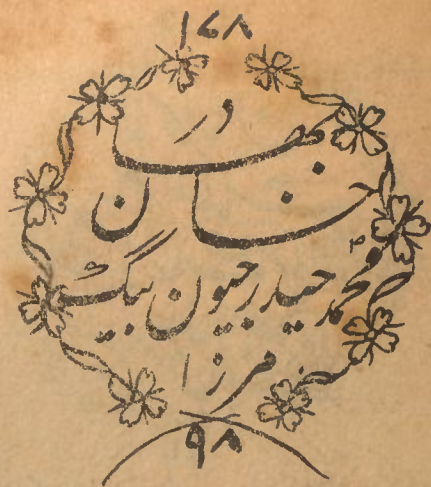 ۱۷۸
بهادر
خان
محمد حیدر جیون بیگ
مرزا
۹۸